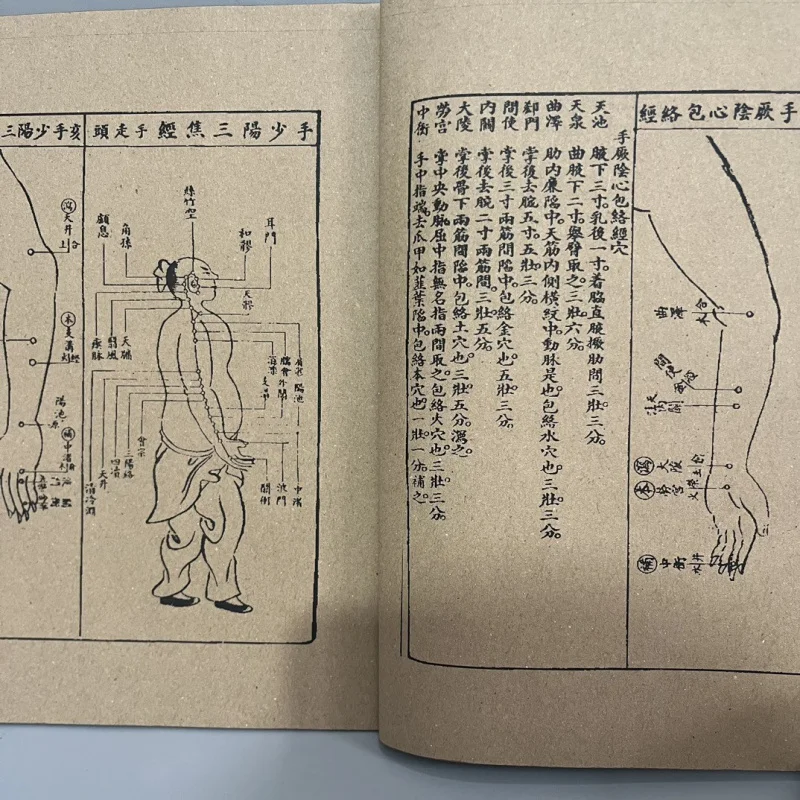 手厥陰心包絡經
曲澤
合水
大陵
勞宮
中衝
井
手厥陰心包絡經穴
天池 腋下三寸。乳後一寸。着脇直腋撅肋問三壯三分。
天泉 曲腋下二寸。舉臂取之。三壯六分。
曲澤 肋內廉陷中。天筋內側橫紋中。動脉是也。包絡水穴也。三壯三分。
郄門 掌後去腕五寸。五壯三分。
間使 掌後三寸兩筋間陷中。包絡金穴也。五壯三分。
內關 掌後去腕二寸兩筋間。三壯五分。
大陵 掌後骨下兩筋間陷中。包絡土穴也。三壯五分。瀉之。
勞宮 掌中央動脉屈中指無名指兩間取之。包絡火穴也。三壯三分。
中衝 手中指端。去爪甲如韮葉陷中。包絡本穴也。一壯一分。補之。
手少陽三焦經 手走頭
耳門
和髎
絲竹空
角孫
顱息
天髎
天牖
翳風
瘈脉
陽池
外關
臑會
會宗
三陽絡
四瀆
天井
清冷淵
中渚
液門
關衝
亥手少陽三
瀉
天井
合土
本
支溝
陽池
原
補
中渚